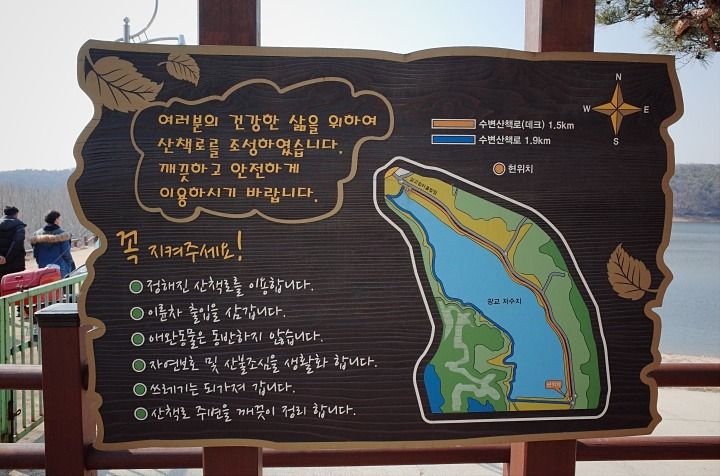 여러분의 건강한 삶을 위하여
산책로를 조성하였습니다.
깨끗하고 안전하게
이용하시기 바랍니다.
꼭 지켜주세요!
정해진 산책로를 이용합니다.
이륜차 출입을 삼갑니다.
애완동물은 동반하지 않습니다.
자연보호 및 산불조심을 생활화 합니다.
쓰레기는 되가져 갑니다.
산책로 주변을 깨끗이 정리 합니다.
수변산책로(데크) 1.5km
수변산책로 1.9km
현위치
N
W E
S
광교 저수지
현위치